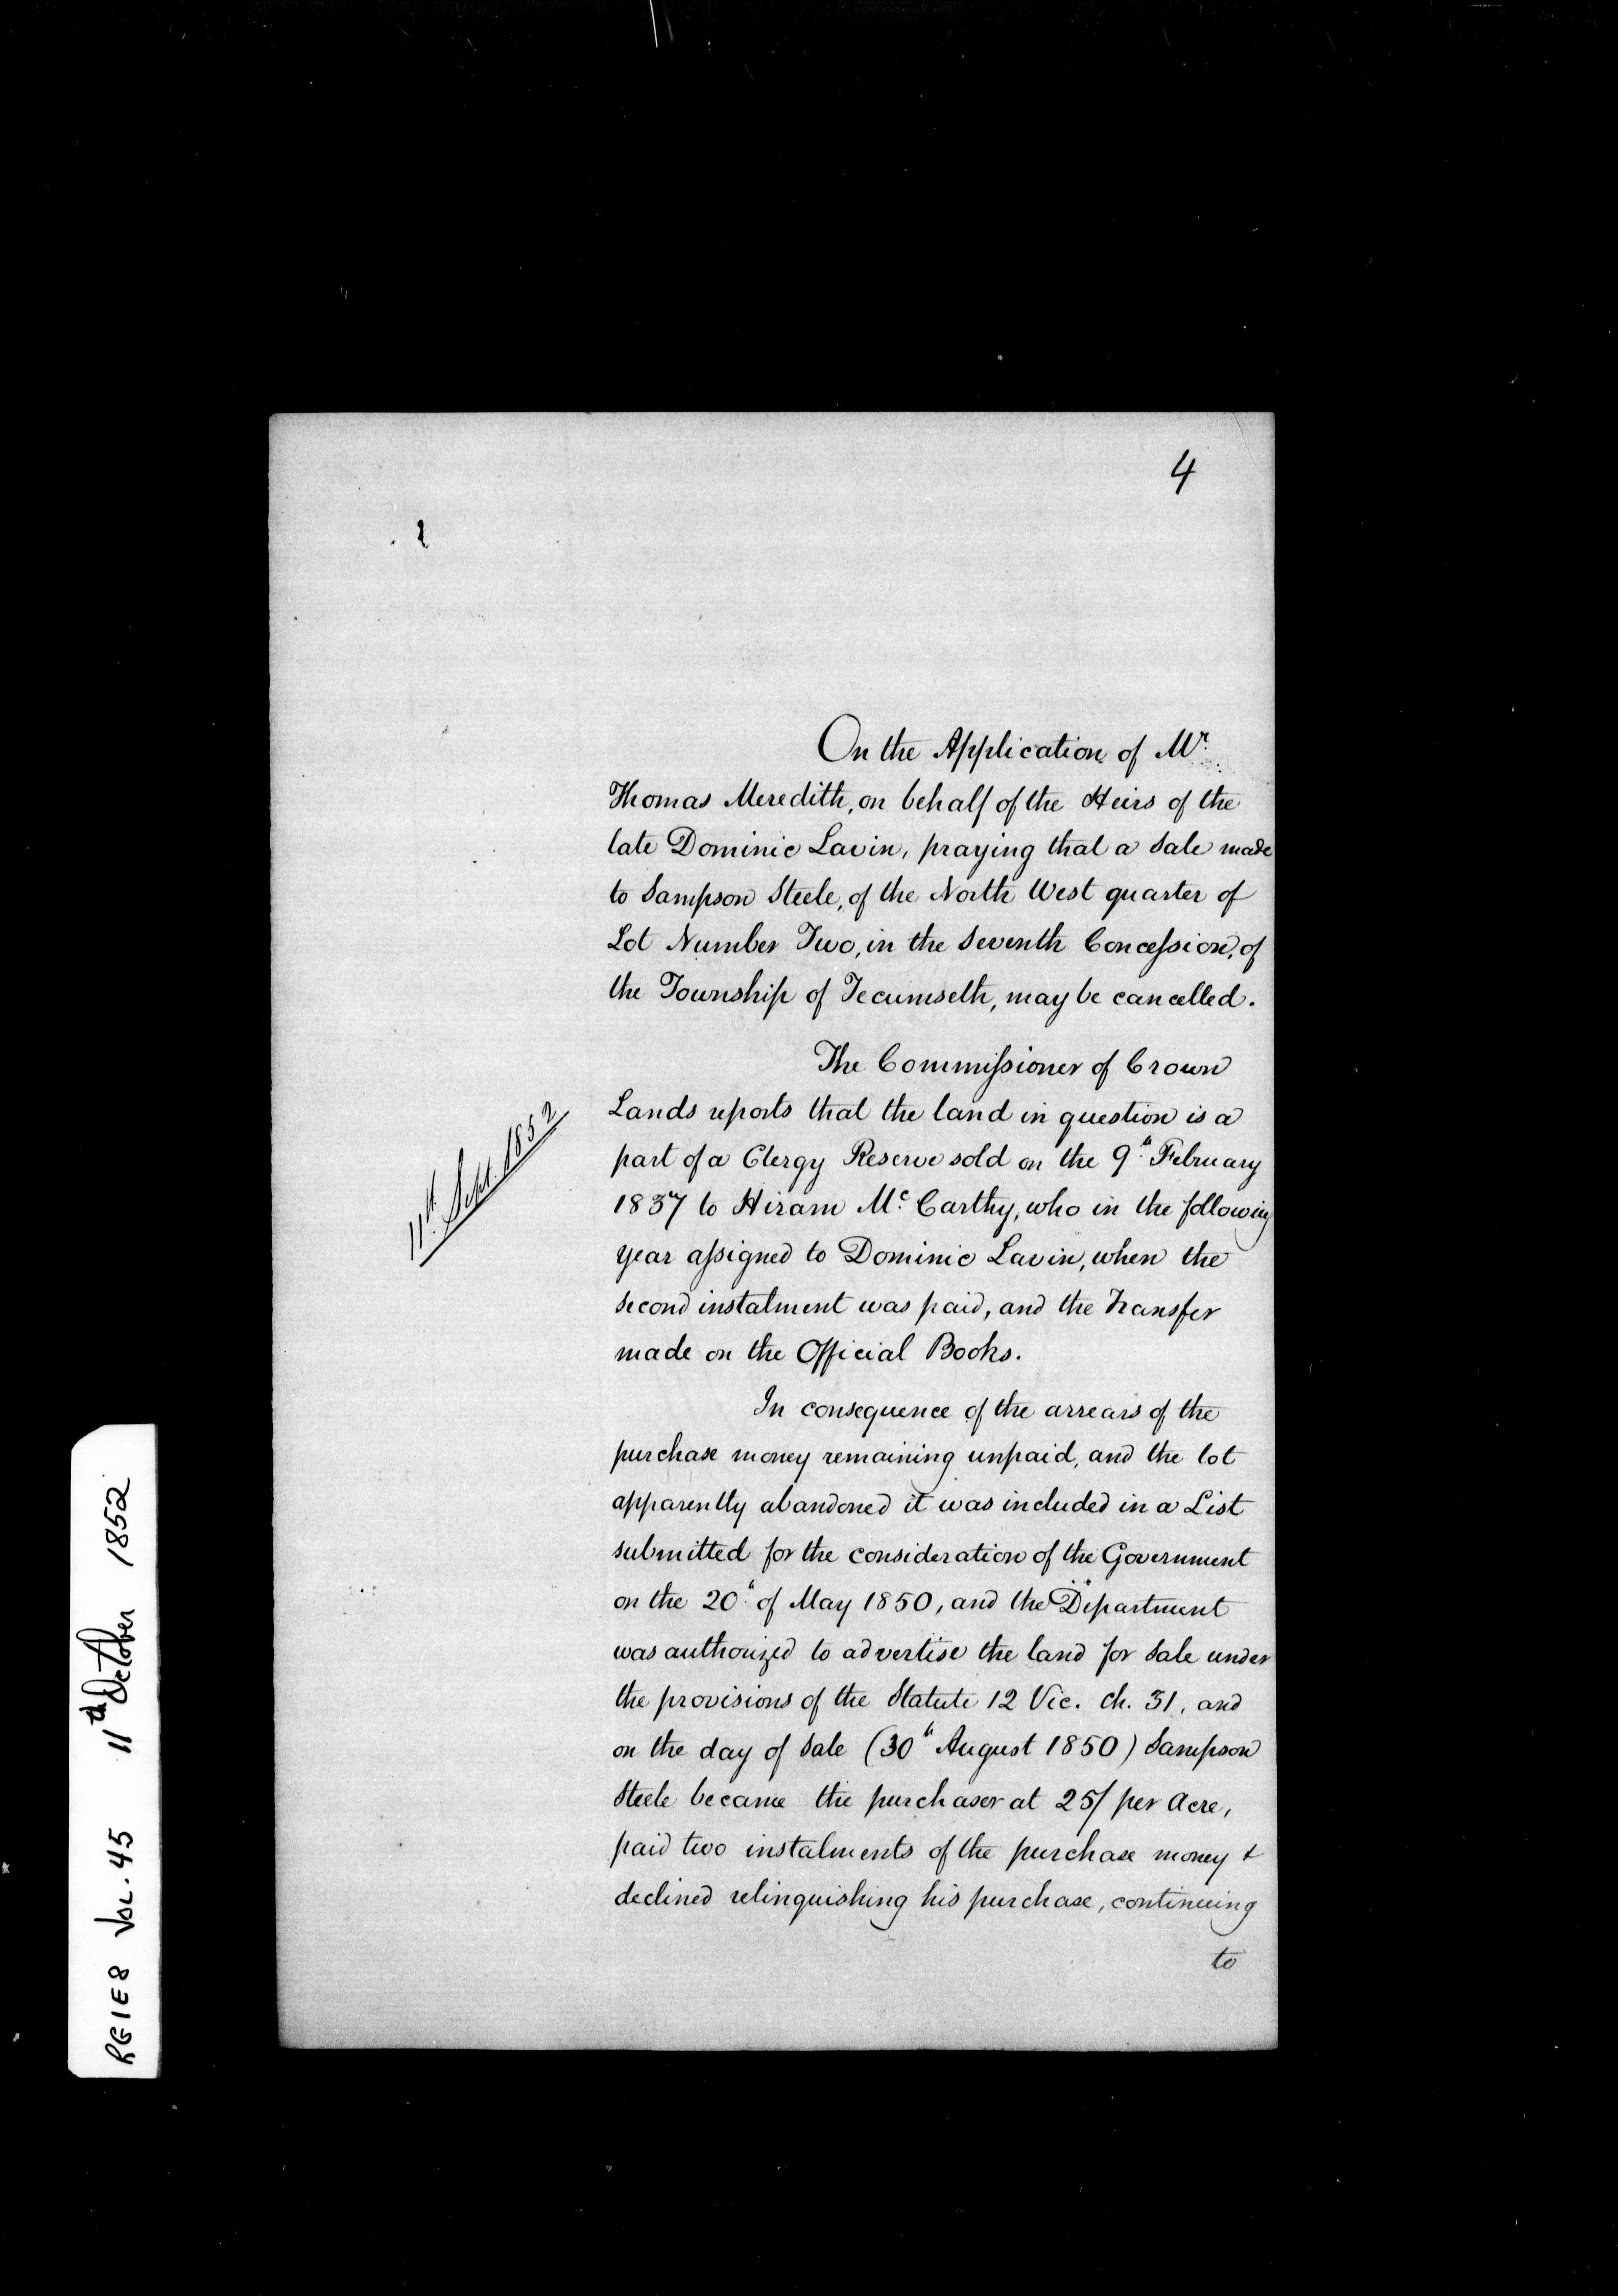 4
On the Application of Mr.
Thomas Meredith, on behalf of the Heirs of the
late Dominic Lavin, praying that a Sale made
to Sampson Steele, of the North West quarter of
Lot Number Two, in the Seventh Concession, of
the Township of Tecumseth, may be cancelled.
The Commissioner of Crown
Lands reports that the land in question is a
part of a Clergy Reserve sold on the 9th February
1837 to Hiram Mc Carthy, who in the following
year assigned to Dominic Lavin, when the
second instalment was paid, and the Transfer
made on the Official Books.
11th Sept. 1852
In consequence of the arrears of the
purchase money remaining unpaid, and the lot
apparently abandoned it was included in a List
submitted for the consideration of the Government
on the 20th of May 1850, and the Department
was authorized to advertise the land for Sale under
the provisions of the Statute 12 Vic. ch. 31, and
on the day of Sale (30th August 1850) Sampson
Steele became the purchaser at 25/ per Acre,
paid two instalments of the purchase money &
declined relinquishing his purchase, continuing
to
RG1E8 VOL. 45 11th October 1852